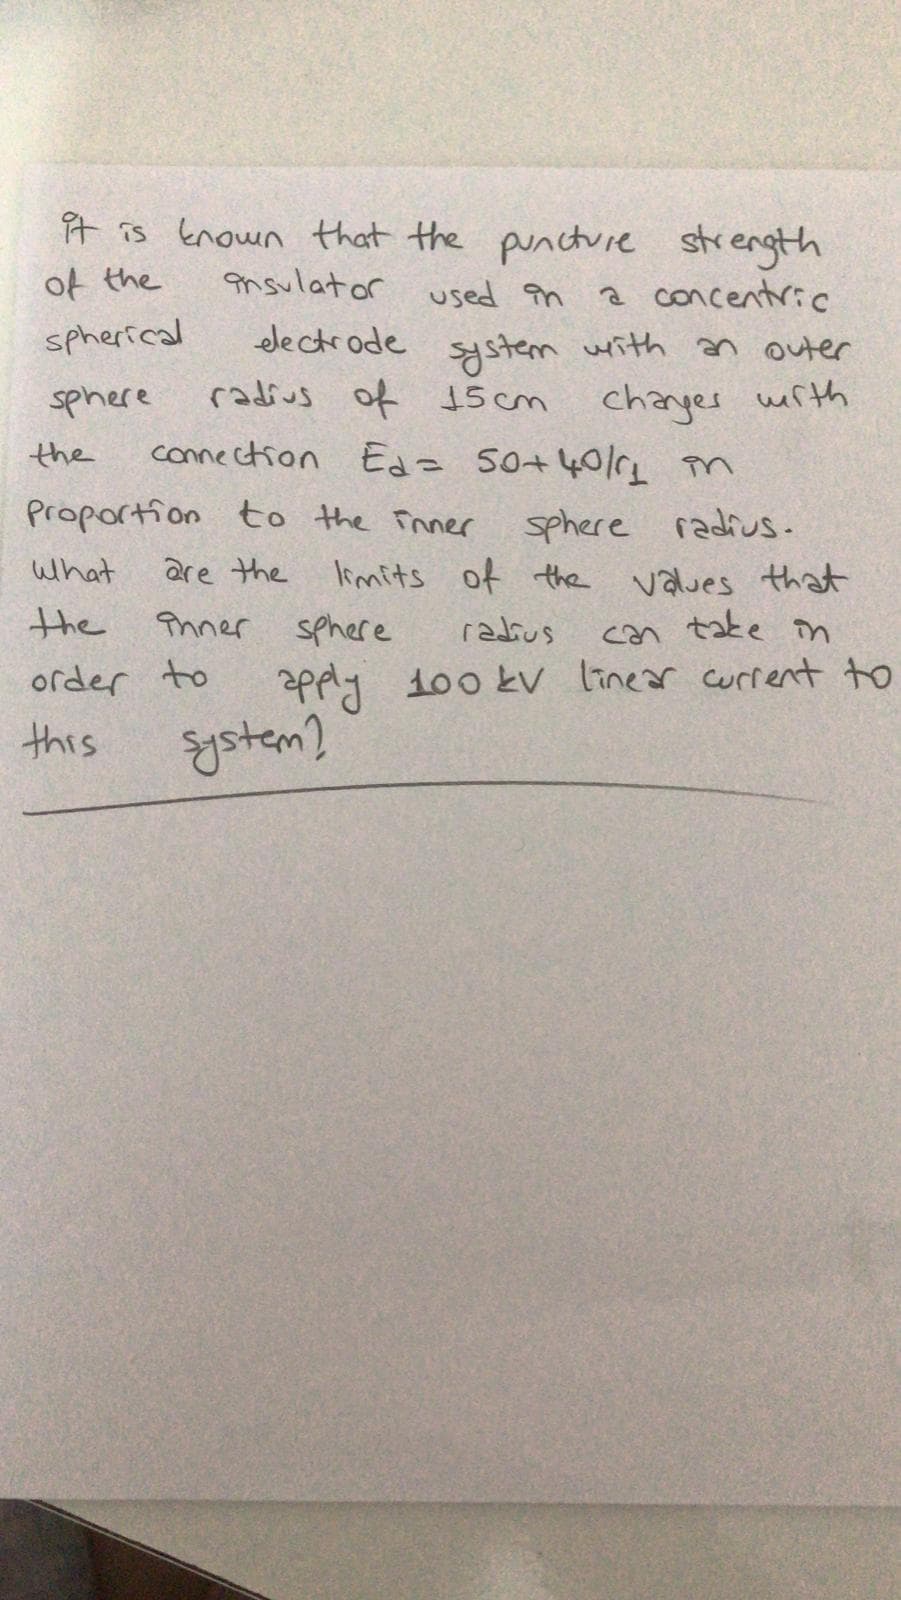 it is known that the puncture strength
of the insulator used in a concentric
spherical electrode system with an outer
sphere radius of 15cm changes with
the connection Ed = 50+40/r1 in
proportion to the inner sphere radius.
What are the limits of the values that
the inner sphere radius can take in
order to apply 100 kV linear current to
this system?